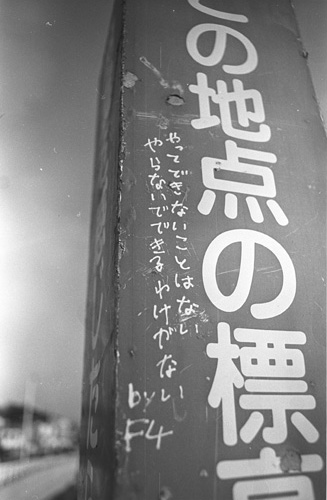 この地点の標高
やってできないことはない
やらないでできるわけがない
by
F4